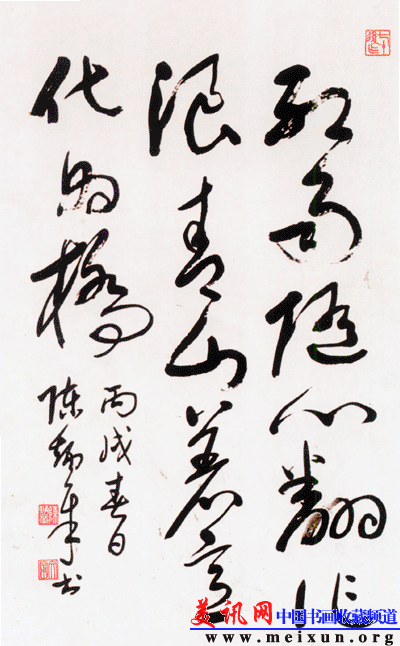 红雨随心翻作
浪青山着意
化为桥
丙戌春日
陈书
美讯网 中国书画收藏频道
www.meixun.org